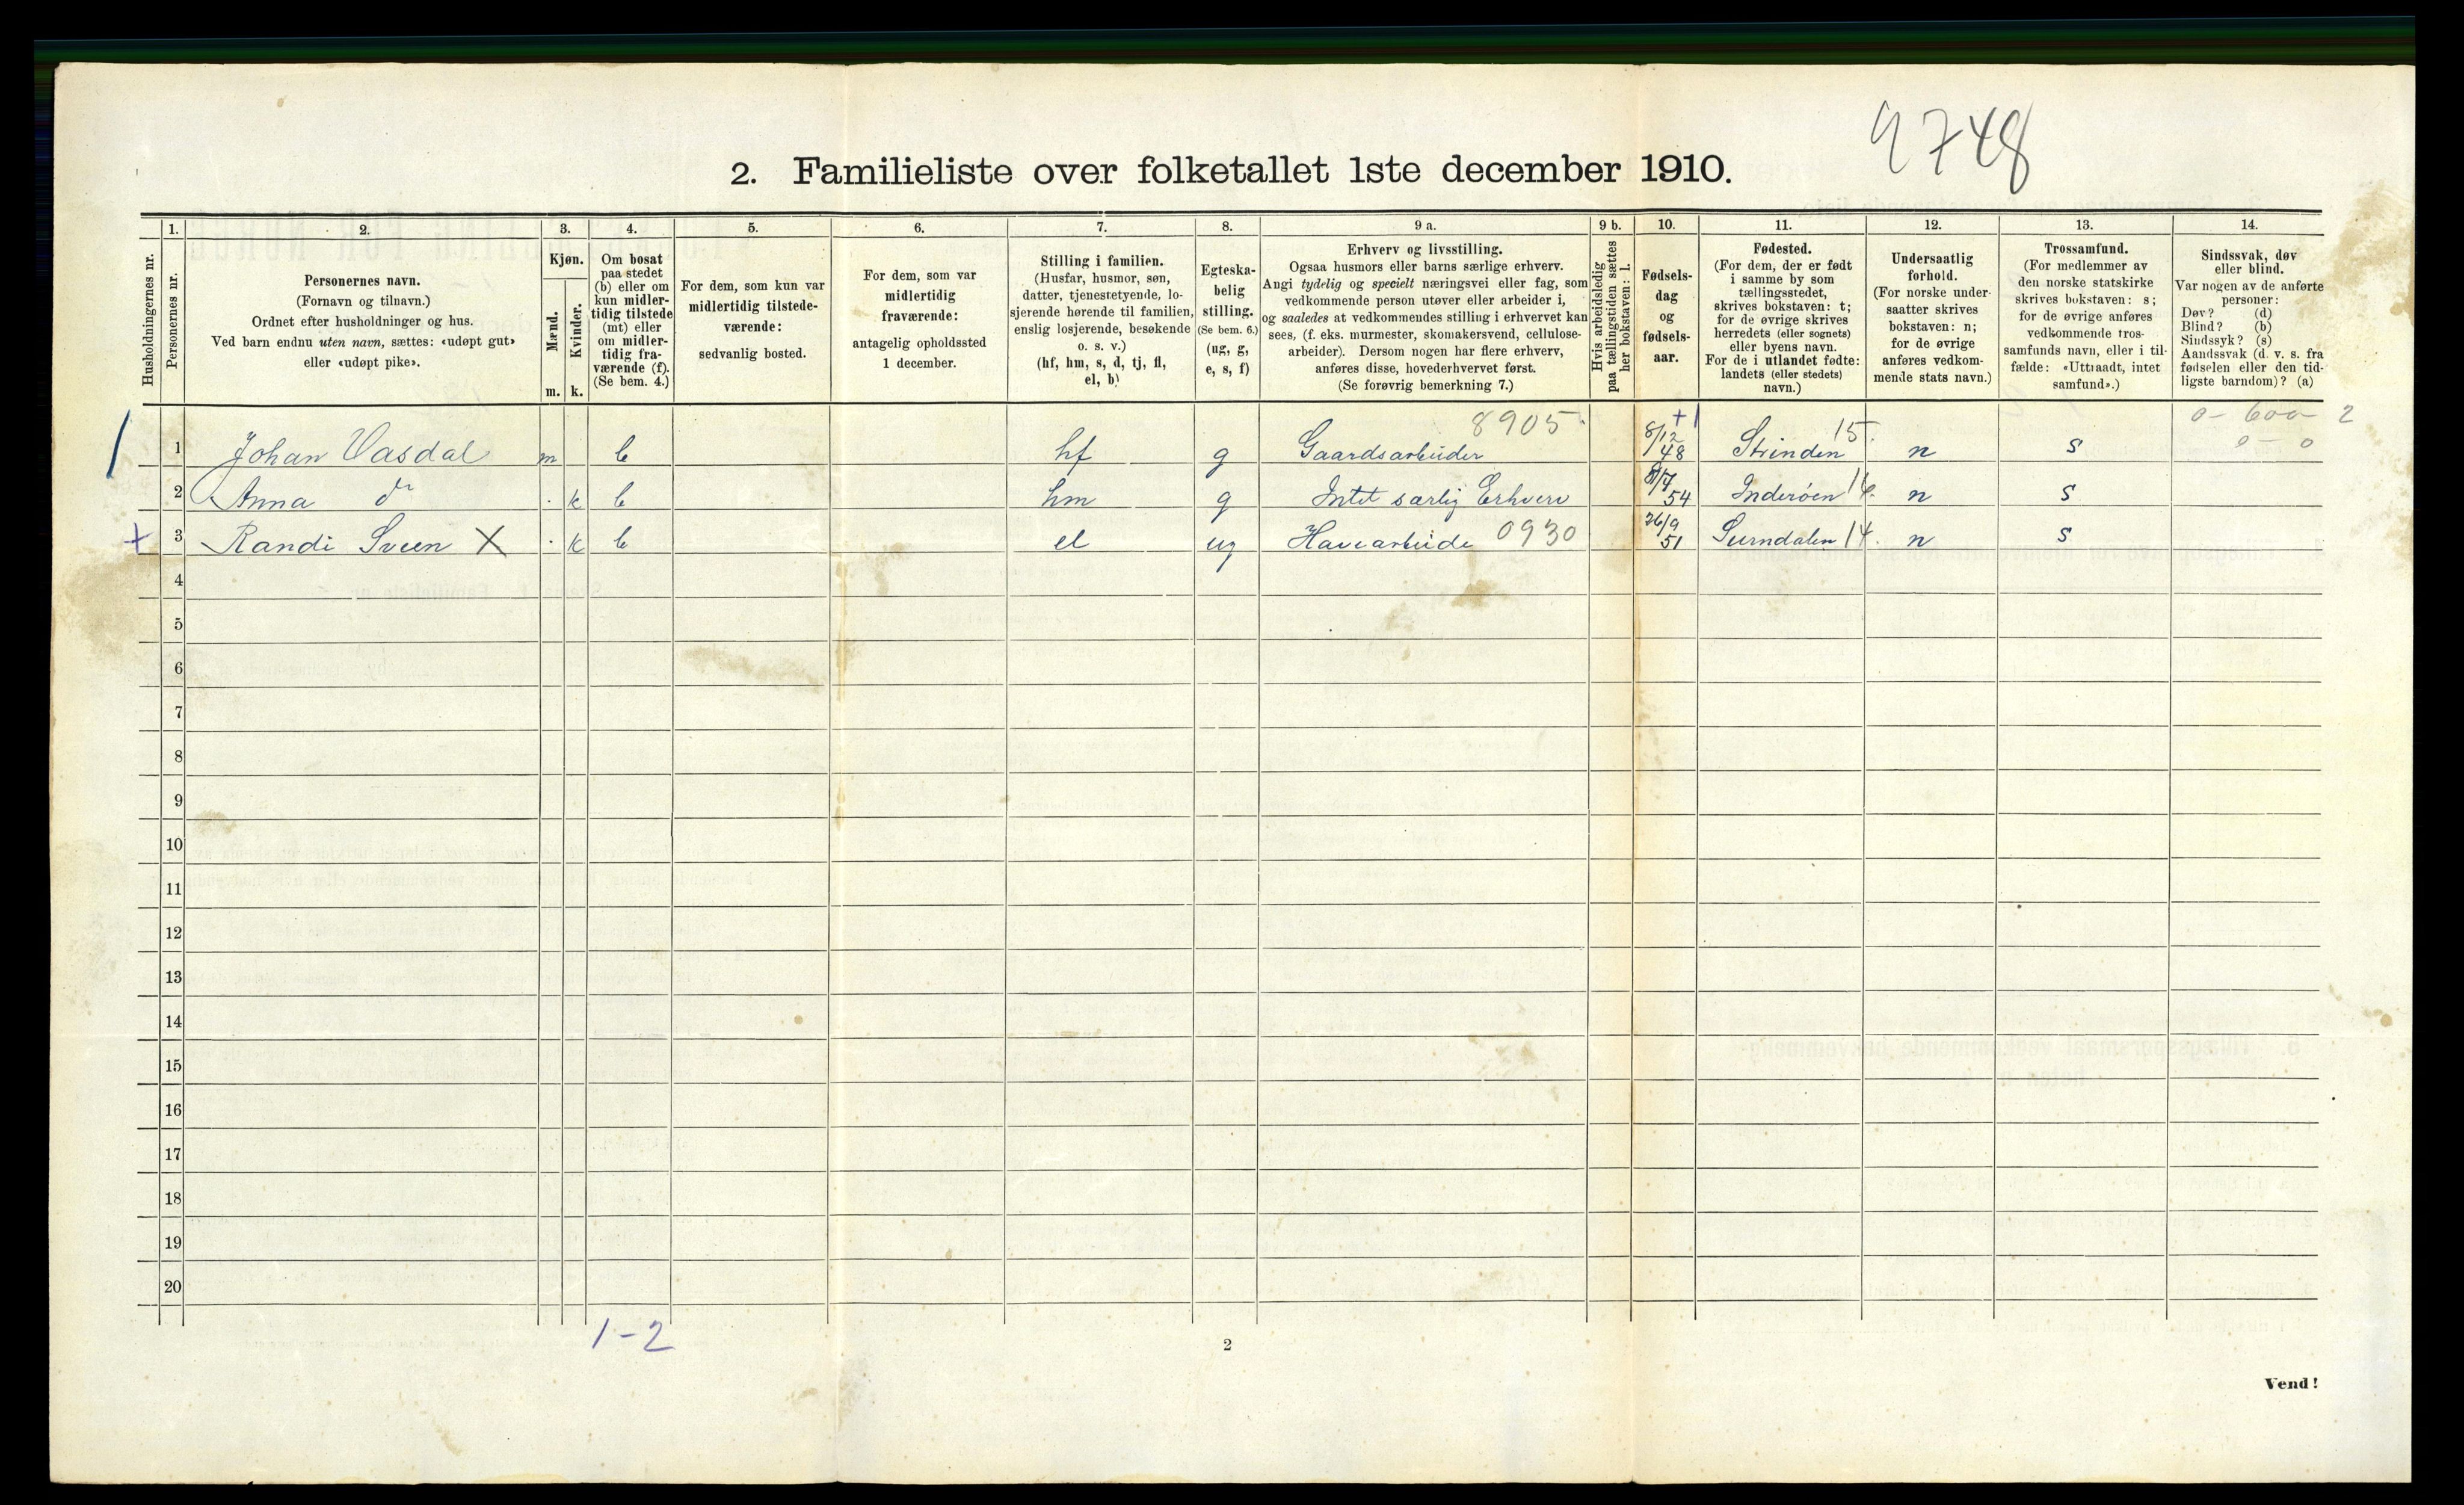 9748
2. Familieliste over folketallet 1ste december 1910.
1. 2. 3. 4. 5. 6. 7. 8. 9 a. 9 b. 10. 11. 12. 13. 14.
Husholdningernes nr.
Personernes nr.
Personernes navn.
(Fornavn og tilnavn.)
Ordnet efter husholdninger og hus.
Ved barn endnu uten navn, sættes: «udøpt gut»
eller «udøpt pike».
Kjøn.
Mænd.
Kvinder.
m. k.
Om bosat
paa stedet
(b) eller om
kun midler-
tidig tilstede
(mt) eller
om midler-
tidig fra-
værende (f).
(Se bem. 4.)
For dem, som kun var
midlertidig tilstede-
værende:
sedvanlig bosted.
For dem, som var
midlertidig
fraværende:
antagelig opholdssted
1 december.
Stilling i familien.
(Husfar, husmor, søn,
datter, tjenestetyende, lo-
sjerende hørende til familien,
enslig losjerende, besøkende
o. s. v.)
(hf, hm, s, d, tj, fl,
el, b)
Egteska-
belig
stilling.
(Se bem. 6.)
(ug, g,
e, s, f)
Erhverv og livsstilling.
Ogsaa husmors eller barns særlige erhverv.
Angi tydelig og specielt næringsvei eller fag, som
vedkommende person utøver eller arbeider i,
og saaledes at vedkommendes stilling i erhvervet kan
sees, (f. eks. murmester, skomakersvend, cellulose-
arbeider). Dersom nogen har flere erhverv,
anføres disse, hovederhvervet først.
(Se forøvrig bemerkning 7.)
Hvis arbeidsledig
paa tællingstiden sættes
her bokstaven: l.
Fødsels-
dag
og
fødsels-
aar.
Fødested.
(For dem, der er født
i samme by som
tællingsstedet,
skrives bokstaven: t;
for de øvrige skrives
herredets (eller sognets)
eller byens navn.
For de i utlandet fødte:
landets (eller stedets)
navn.)
Undersaatlig
forhold.
(For norske under-
saatter skrives
bokstaven: n;
for de øvrige
anføres vedkom-
mende stats navn.)
Trossamfund.
(For medlemmer av
den norske statskirke
skrives bokstaven: s;
for de øvrige anføres
vedkommende tros-
samfunds navn, eller i til-
fælde: «Uttraadt, intet
samfund».)
Sindssvak, døv
eller blind.
Var nogen av de anførte
personer:
Døv? (d)
Blind? (b)
Sindssyk? (s)
Aandssvak (d. v. s. fra
fødselen eller den tid-
ligste barndom)? (a)
8905 +1 0 - 600 - 2
1 1 Johan Vasdal m b hf g Gaardsarbeider 8/12 48 Strinden 15. n s 0 - 0
2 Anna do k b hm g Intet særlig Erhverv 8/7 54 Inderøen 14. n s
+ 3 Randi Sveen X k b el ug Havearbeide 0930 26/9 51 Surndalen 14. n s
4
5
6
7
8
9
10
11
12
13
14
15
16
17
18
19
20
1-2
2
Vend!